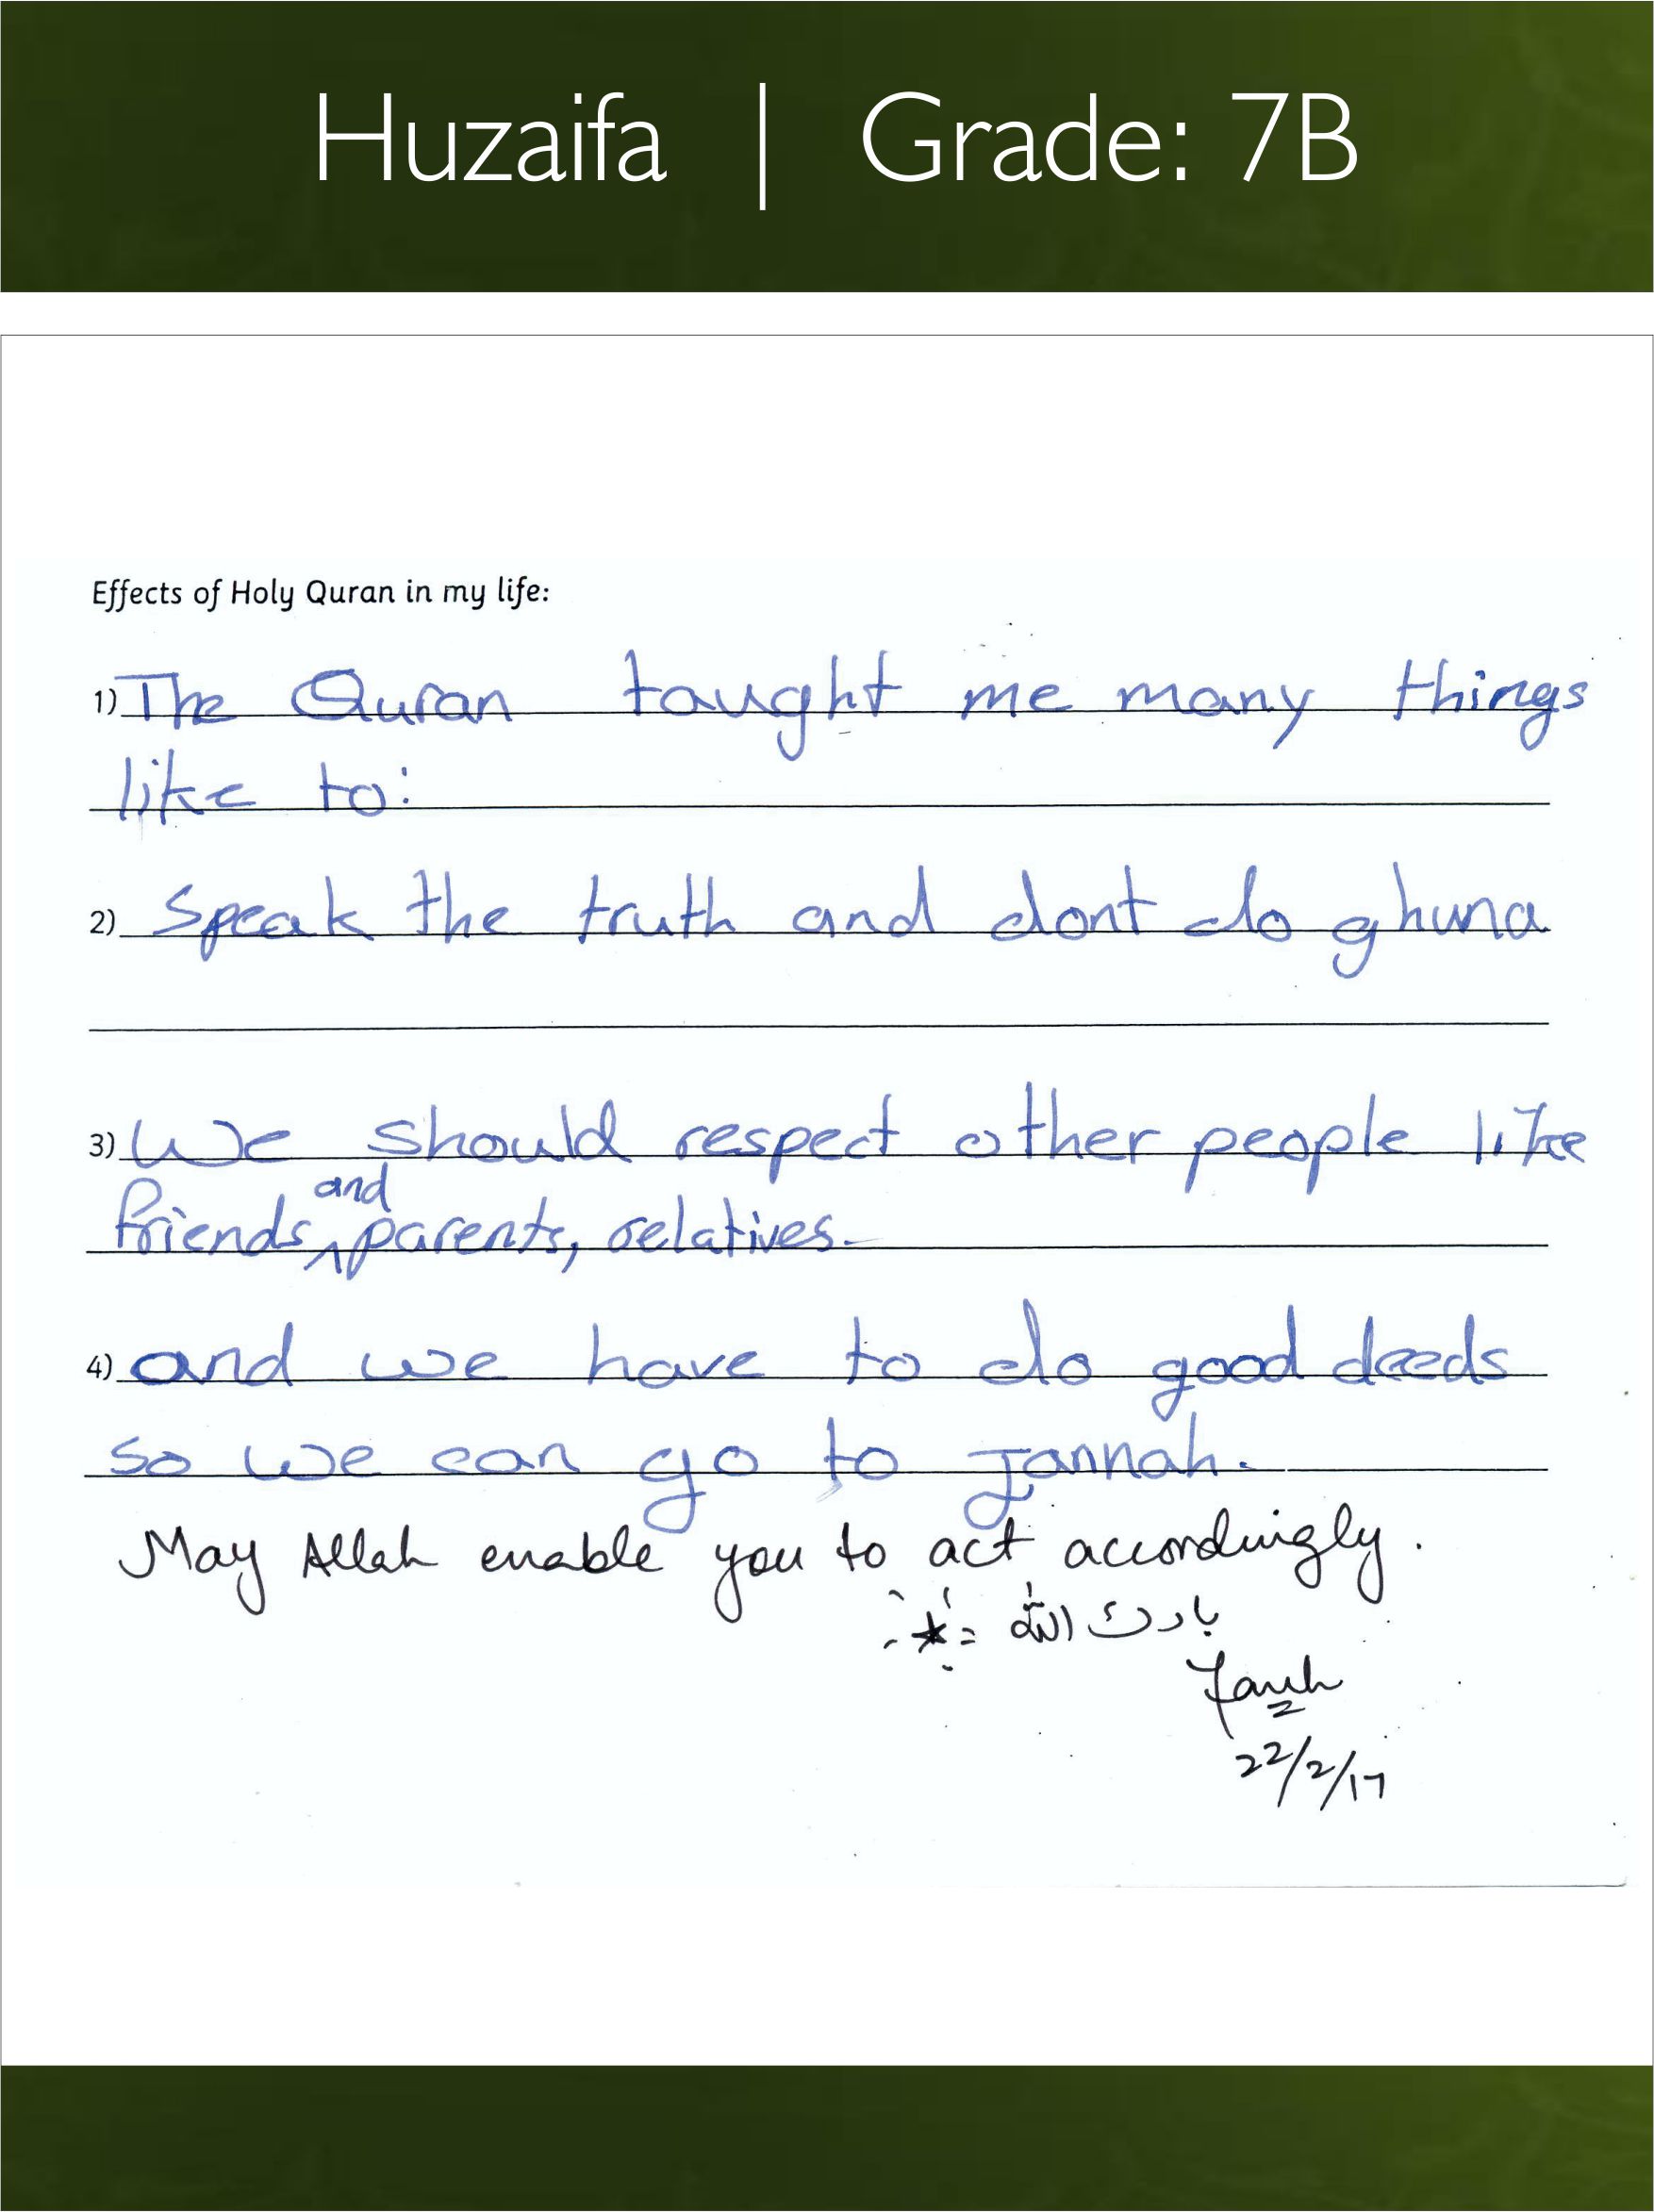 Huzaifa | Grade: 7B
Effects of Holy Quran in my life:
1) The Quran taught me many things
like to:
2) Speak the truth and dont do ghuna
3) We should respect other people like
friends, and parents, relatives.
4) and we have to do good deeds
so we can go to Jannah.
May Allah enable you to act accordingly.
بارك الله
22/2/17